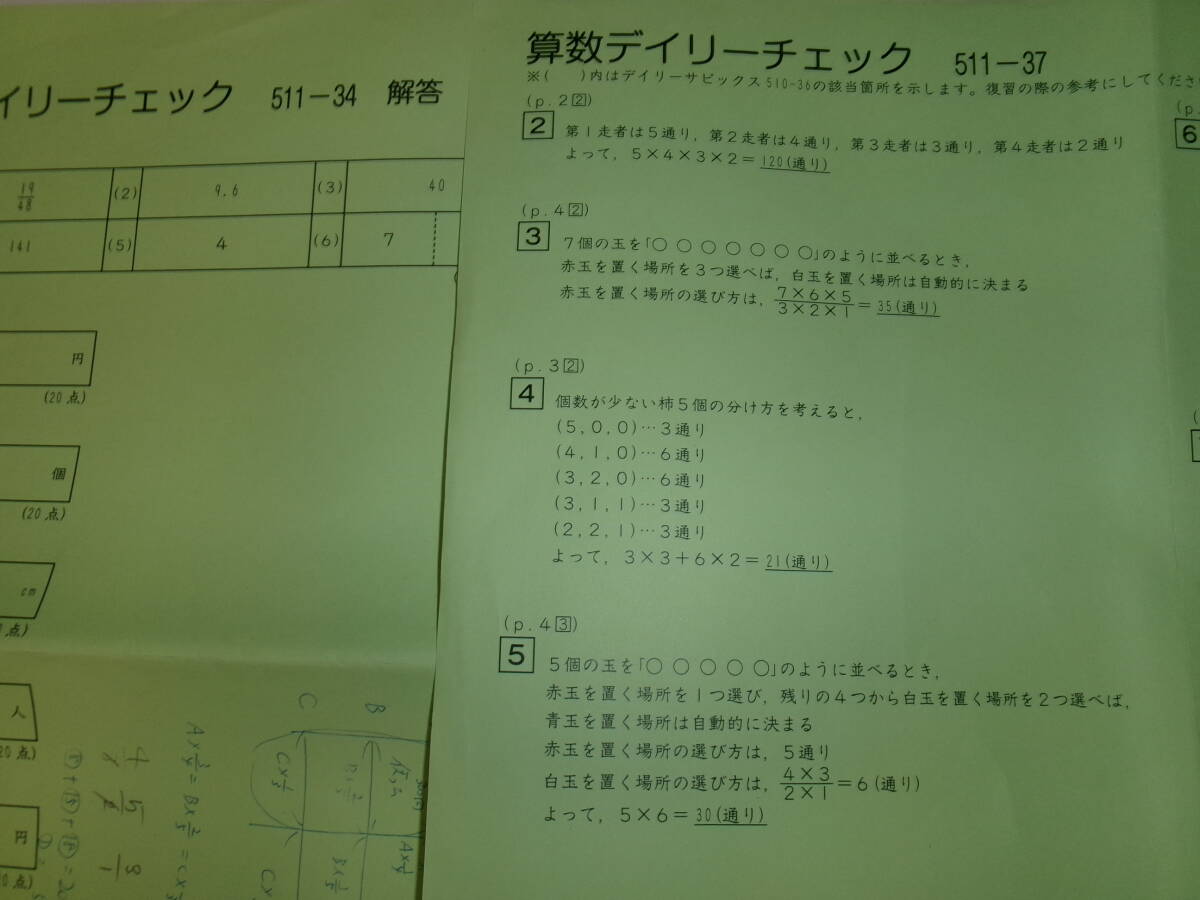 イリーチェック 511-34 解答
19/48 (2) 9.6 (3) 40
141 (5) 4 (6) 7
円
(20点)
個
(20点)
cm
点)
人
20点)
円
0点)
算数デイリーチェック 511-37
※( )内はデイリーサピックス510-36の該当箇所を示します。復習の際の参考にしてくださ
(p.2②)
2 第1走者は5通り,第2走者は4通り,第3走者は3通り,第4走者は2通り
よって,5×4×3×2=120(通り)
(p.4②)
3 7個の玉を「○ ○ ○ ○ ○ ○ ○」のように並べるとき,
赤玉を置く場所を3つ選べば,白玉を置く場所は自動的に決まる
赤玉を置く場所の選び方は,7×6×5/3×2×1=35(通り)
(p.3②)
4 個数が少ない柿5個の分け方を考えると,
(5,0,0)…3通り
(4,1,0)…6通り
(3,2,0)…6通り
(3,1,1)…3通り
(2,2,1)…3通り
よって,3×3+6×2=21(通り)
(p.4③)
5 5個の玉を「○ ○ ○ ○ ○」のように並べるとき,
赤玉を置く場所を1つ選び,残りの4つから白玉を置く場所を2つ選べば,
青玉を置く場所は自動的に決まる
赤玉を置く場所の選び方は,5通り
白玉を置く場所の選び方は,4×3/2×1=6(通り)
よって,5×6=30(通り)
(p.
6
C
B